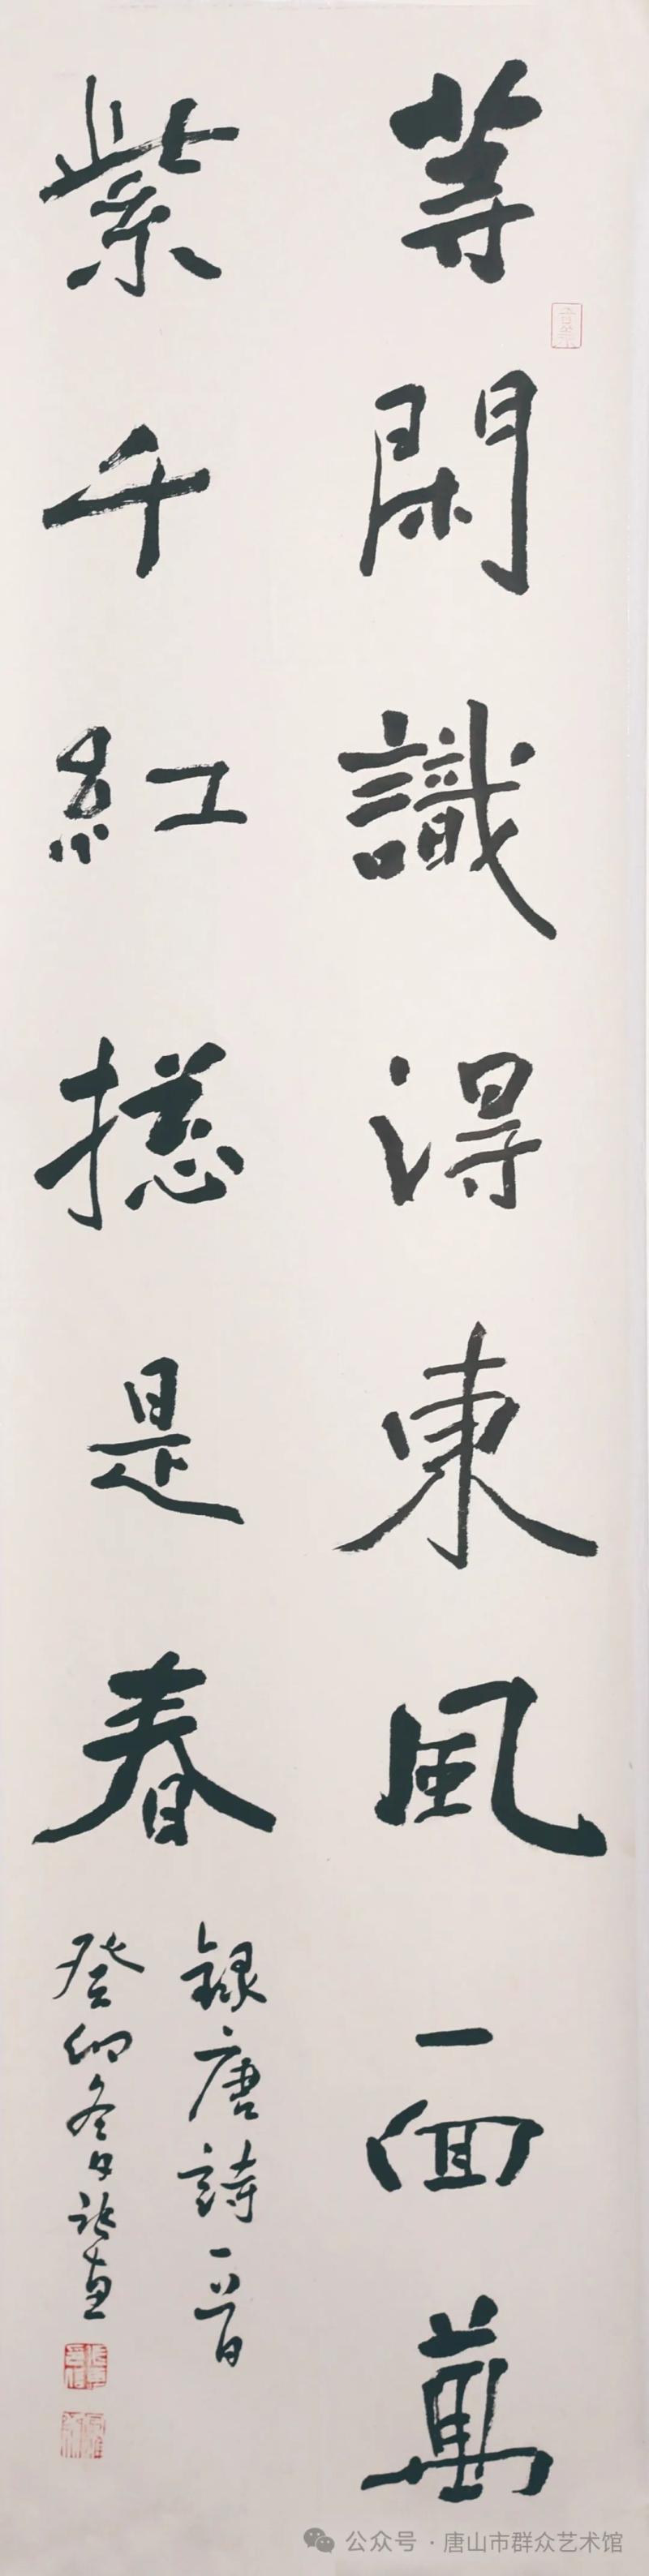 等閑識得東風一面萬
紫千紅揔是春
録唐詩一首
癸卯冬月
公众号·唐山市群众艺术馆